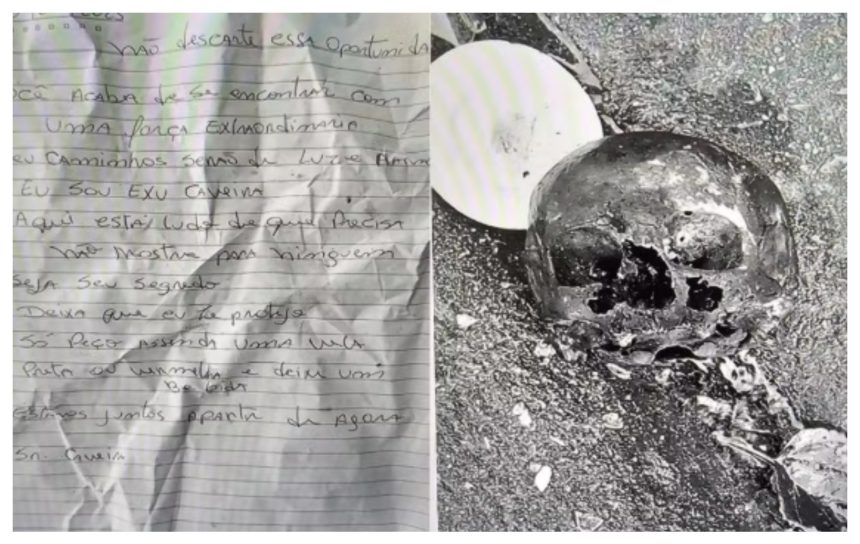 NÃO descarte essa oportunida
ocê ACABA de se encontrar com
UMA força EXTRAORDINARIA
eu CAMINHOS SERÃO de LUZ e
EU SOU EXU CAVEIRA
Aqui está tudo de que Precisa
NÃO mostre PARA ninguem
Seja Seu Segredo
Deixa que eu te protejo
Só Peço Assenda UMA vela
Preta ou vermelha e deixe um
Bebida
Estamos juntos APARTI de AGORA
Sr. Caveira